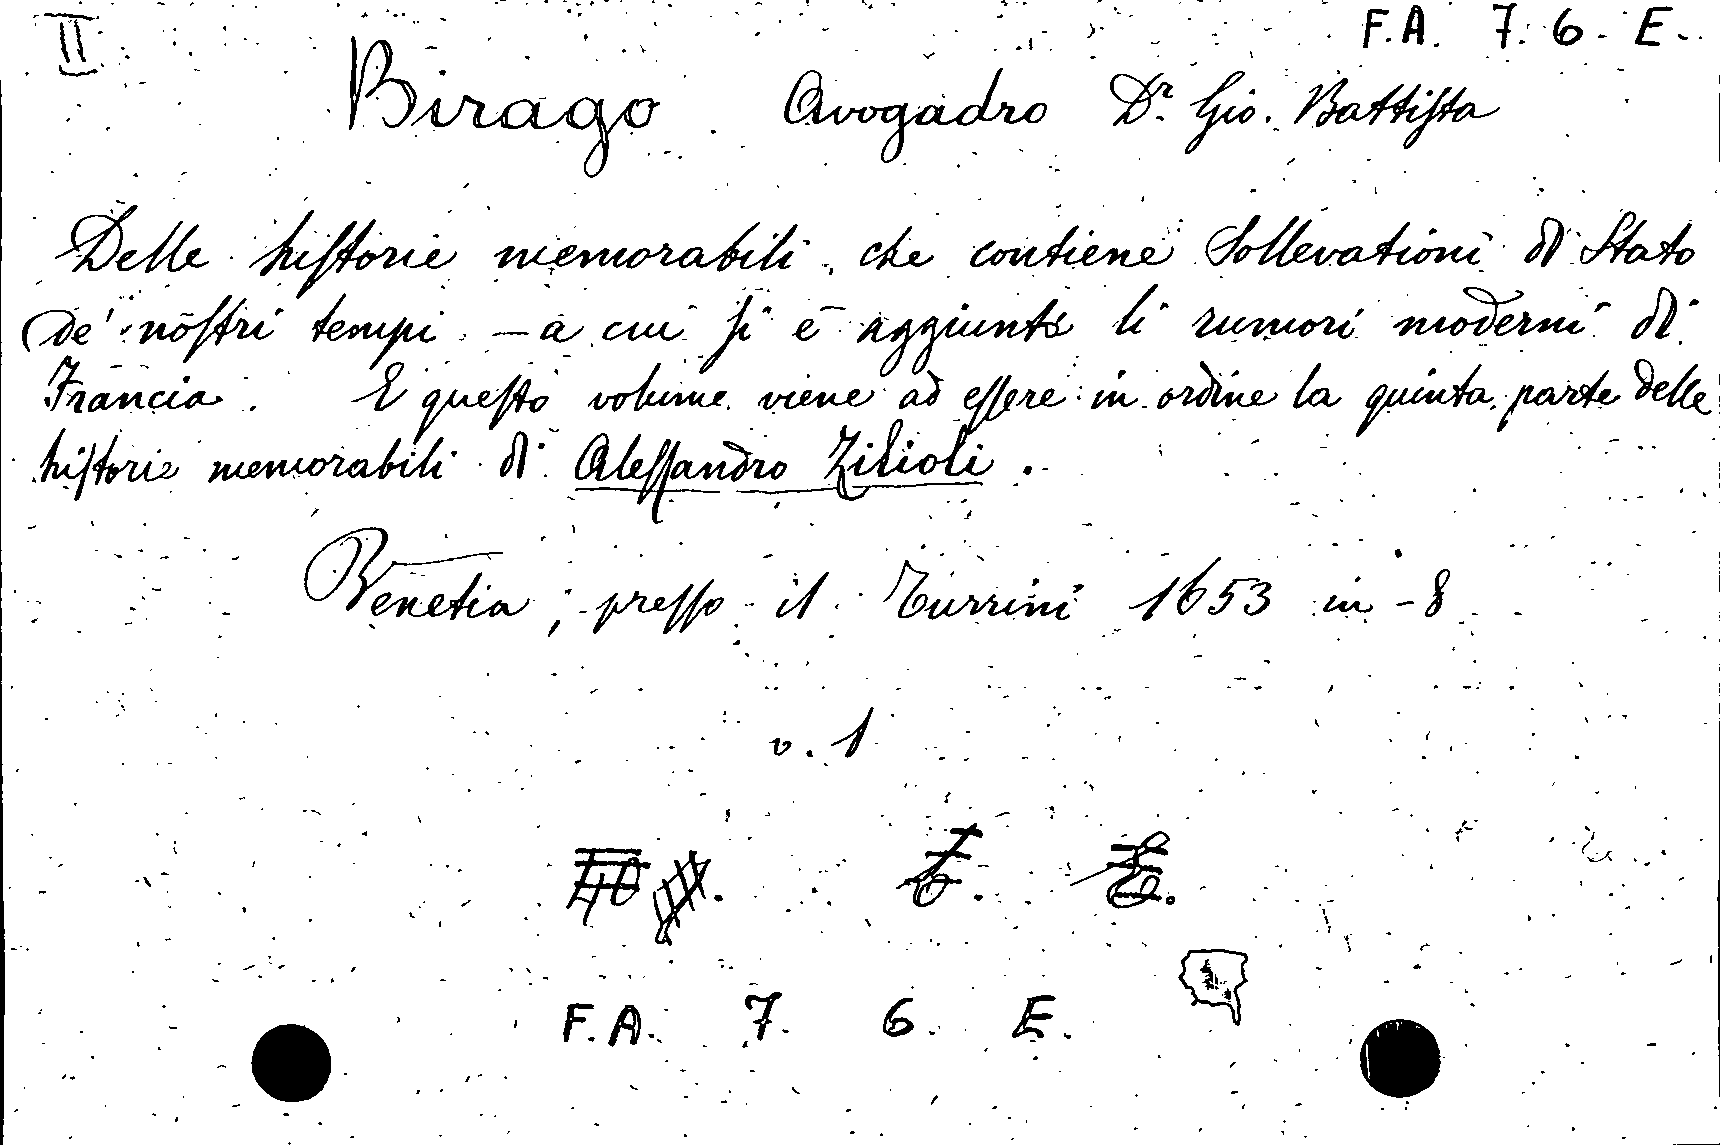 II
F.A. 7. 6. E.
Birago Avogadro Dr. Gio. Battista
Delle historie memorabili, che contiene Sollevationi di Stato
de' nostri tempi – a cui si è aggiunto li rumori moderni di
Francia. E questo volume viene ad essere in ordine la quinta parte delle
historie memorabili di Alessandro Zilioli.
Venetia, presso il Turrini 1653 in-8
v. 1
F.A. 7. 6. E.